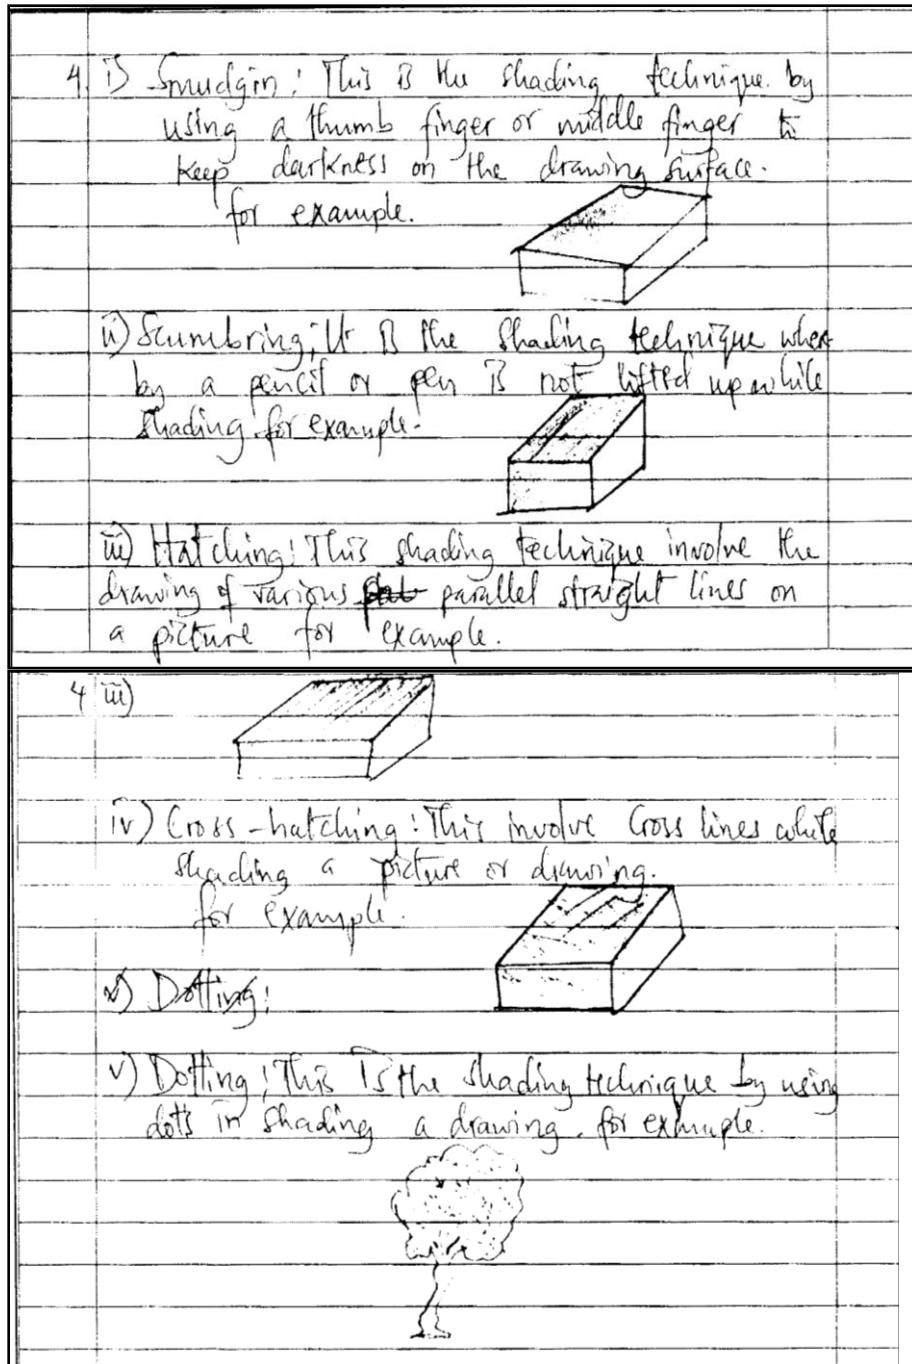 4. i) Smudgin: This is the shading technique by
using a thumb finger or middle finger to
keep darkness on the drawing surface.
for example.
ii) Scumbring; It is the shading technique where
by a pencil or pen is not lifted up while
shading for example.
iii) Hatching: This shading technique involve the
drawing of various parallel straight lines on
a picture for example.
4 iii)
iv) Cross-hatching: This involve Cross lines while
shading a picture or drawing.
for example.
v) Dotting:
v) Dotting; This is the shading technique by using
dots in shading a drawing. for example.